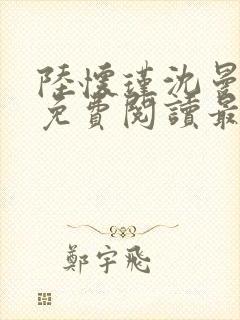 陸懷瑾沈曼
免費閱讀最
鄭宇飛